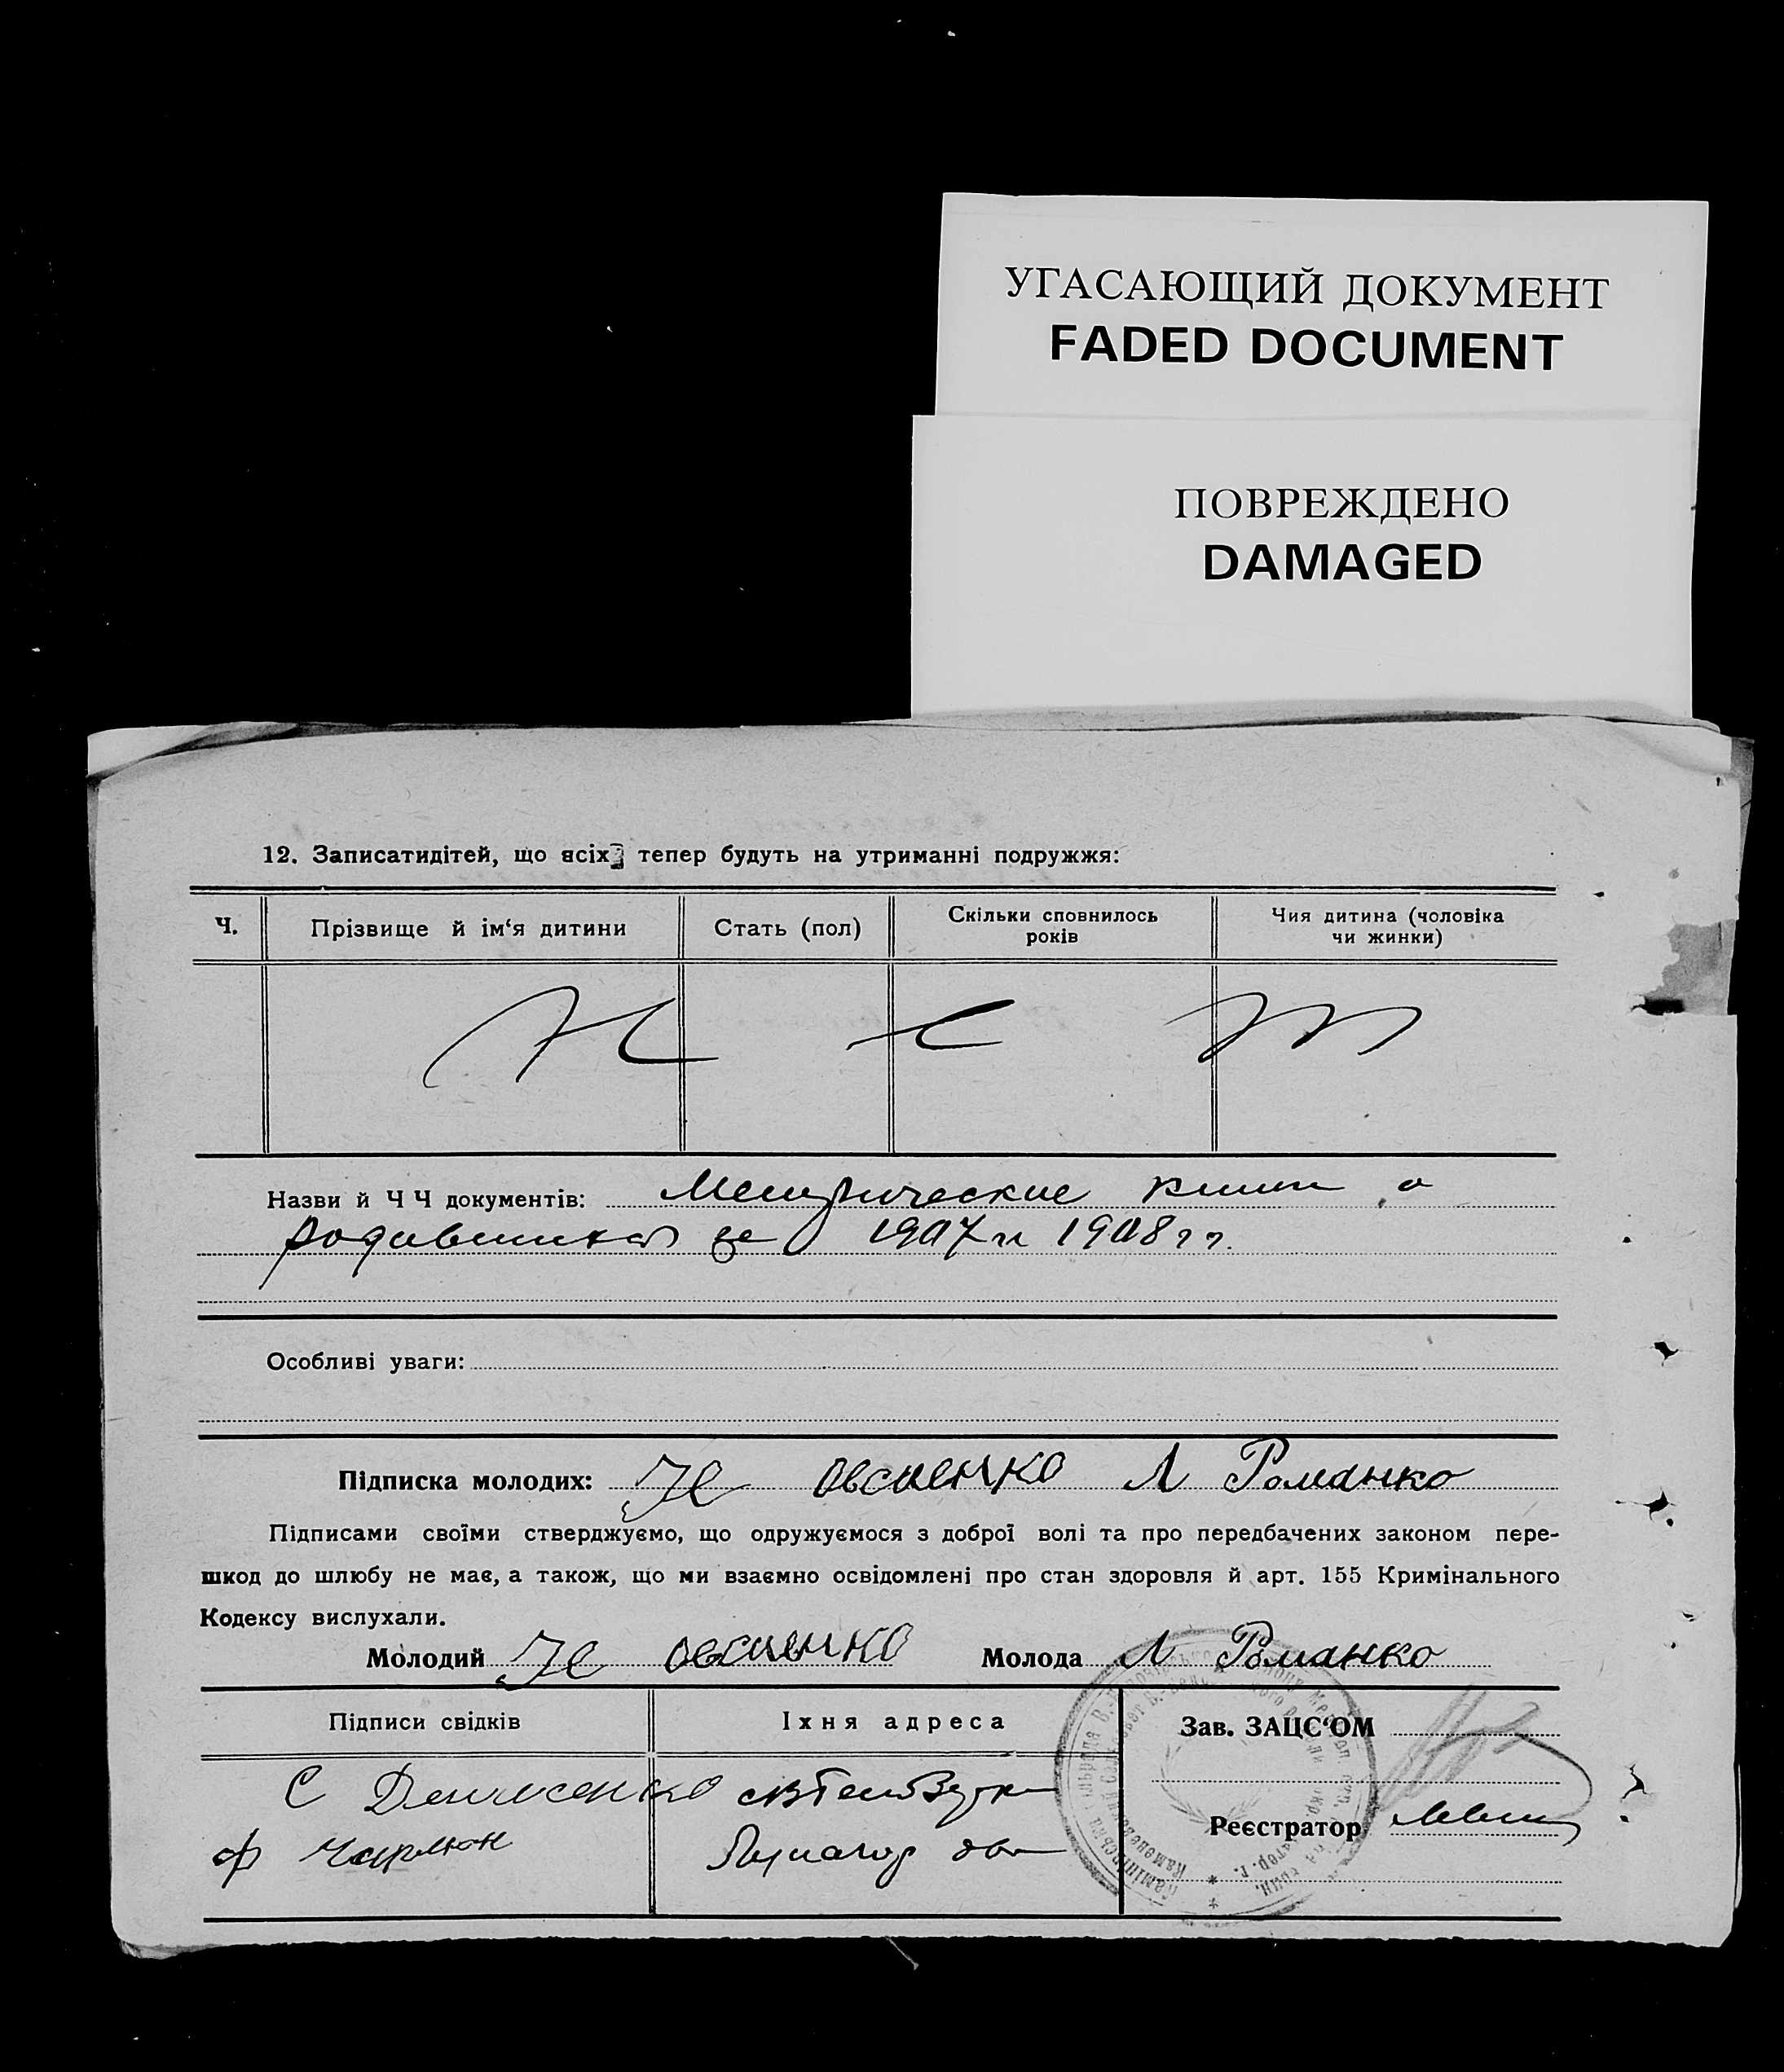 УГАСАЮЩИЙ ДОКУМЕНТ
FADED DOCUMENT
ПОВРЕЖДЕНО
DAMAGED
12. Записатидітей, що всіх тепер будуть на утриманні подружжя:
Ч.
Прізвище й ім‘я дитини
Стать (пол)
Скільки сповнилось
років
Чия дитина (чоловіка
чи жинки)
Назви й Ч Ч документів: Метрические книги о
родившихся за 1907 и 1908 г г.
Особливі уваги:
Підписка молодих: Овсиенко Л Романко
Підписами своїми стверджуємо, що одружуємося з доброї волі та про передбачених законом пере-
шкод до шлюбу не має, а також, що ми взаємно освідомлені про стан здоровля й арт. 155 Кримінального
Кодексу вислухали.
Молодий Овсиенко Молода Л Романко
Підписи свідків
Їхня адреса
Зав. ЗАЦС‘ОМ
С Денисенко
Реєстратор
Ф